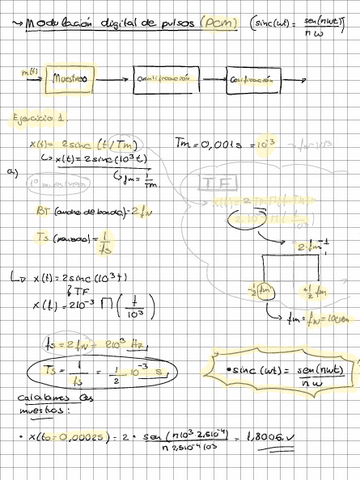 → Modulación digital de pulsos (PCM) (sinc(wt) = sen(πwt) / πw)
m(t) → Muestreo → Cuantificación → Codificación →
Ejercicio 1
x(t) = 2 sinc (t/Tm) Tm = 0,001s = 10⁻³
↳ x(t) = 2 sinc (10³t)
↳ fm = 1/Tm
a)
TF
BT (ancho de banda) = 2 fN
2 fm⁻¹
Ts (muestreo) = 1/fs
↳ x(t) = 2 sinc (10³t)
↓ TF
x(f) = 2·10⁻³ Π (f/10³)
-½ fm +½ fm
fs = 2 fN = 2·10³ Hz
Ts = 1/fs = 1/2 · 10⁻³ s
• sinc (wt) = sen(πwt) / πw
Calculamos las
muestras:
• x(t0 = 0,00025) = 2 · sen(π10³·2,5·10⁻⁴) / π 2,5·10⁻⁴·10³ = 1,8006 v